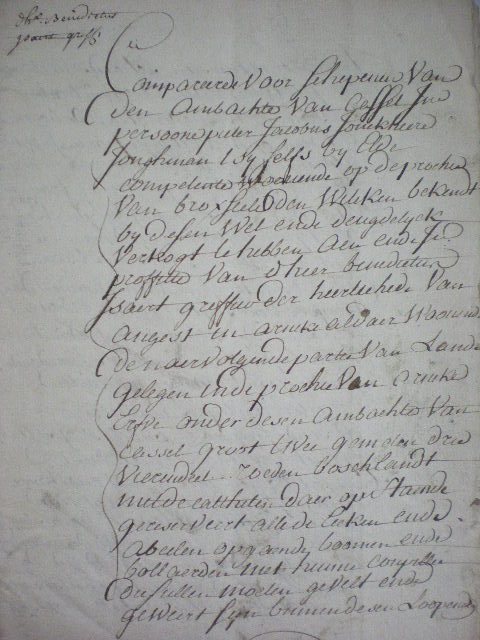 Sr. Benedictus
Isaert greff.
Compareerde Voor Schepenen Van
den Ambachte Van Cassel In
persoone pieter Jacobus
Jonghman Sy selfs by Elde
competente woonende op de prochie
Van broxseele den Welcken bekendt
by desen Wel ende deugdelyck
Verkogt te hebben Aen ende In
proffitte Van d'heer benedictus
Isaert greffier der heerlichede Van
angest in arnicke aldaer Woonende
de naervolgende partie Van Lande
gelegen in de prochie Van arnicke
Erfve onder desen Ambachte Van
Cassel groot twee gemeten drie
Vierendeel roeden boschlandt
mette cattheilen daer op staende
gereserveert alle de Eecken ende
abeelen opgaende boomen ende
bollaerden met hunne
die sullen moeten gevelt ende
geweirt syn binnen desen Loopenden